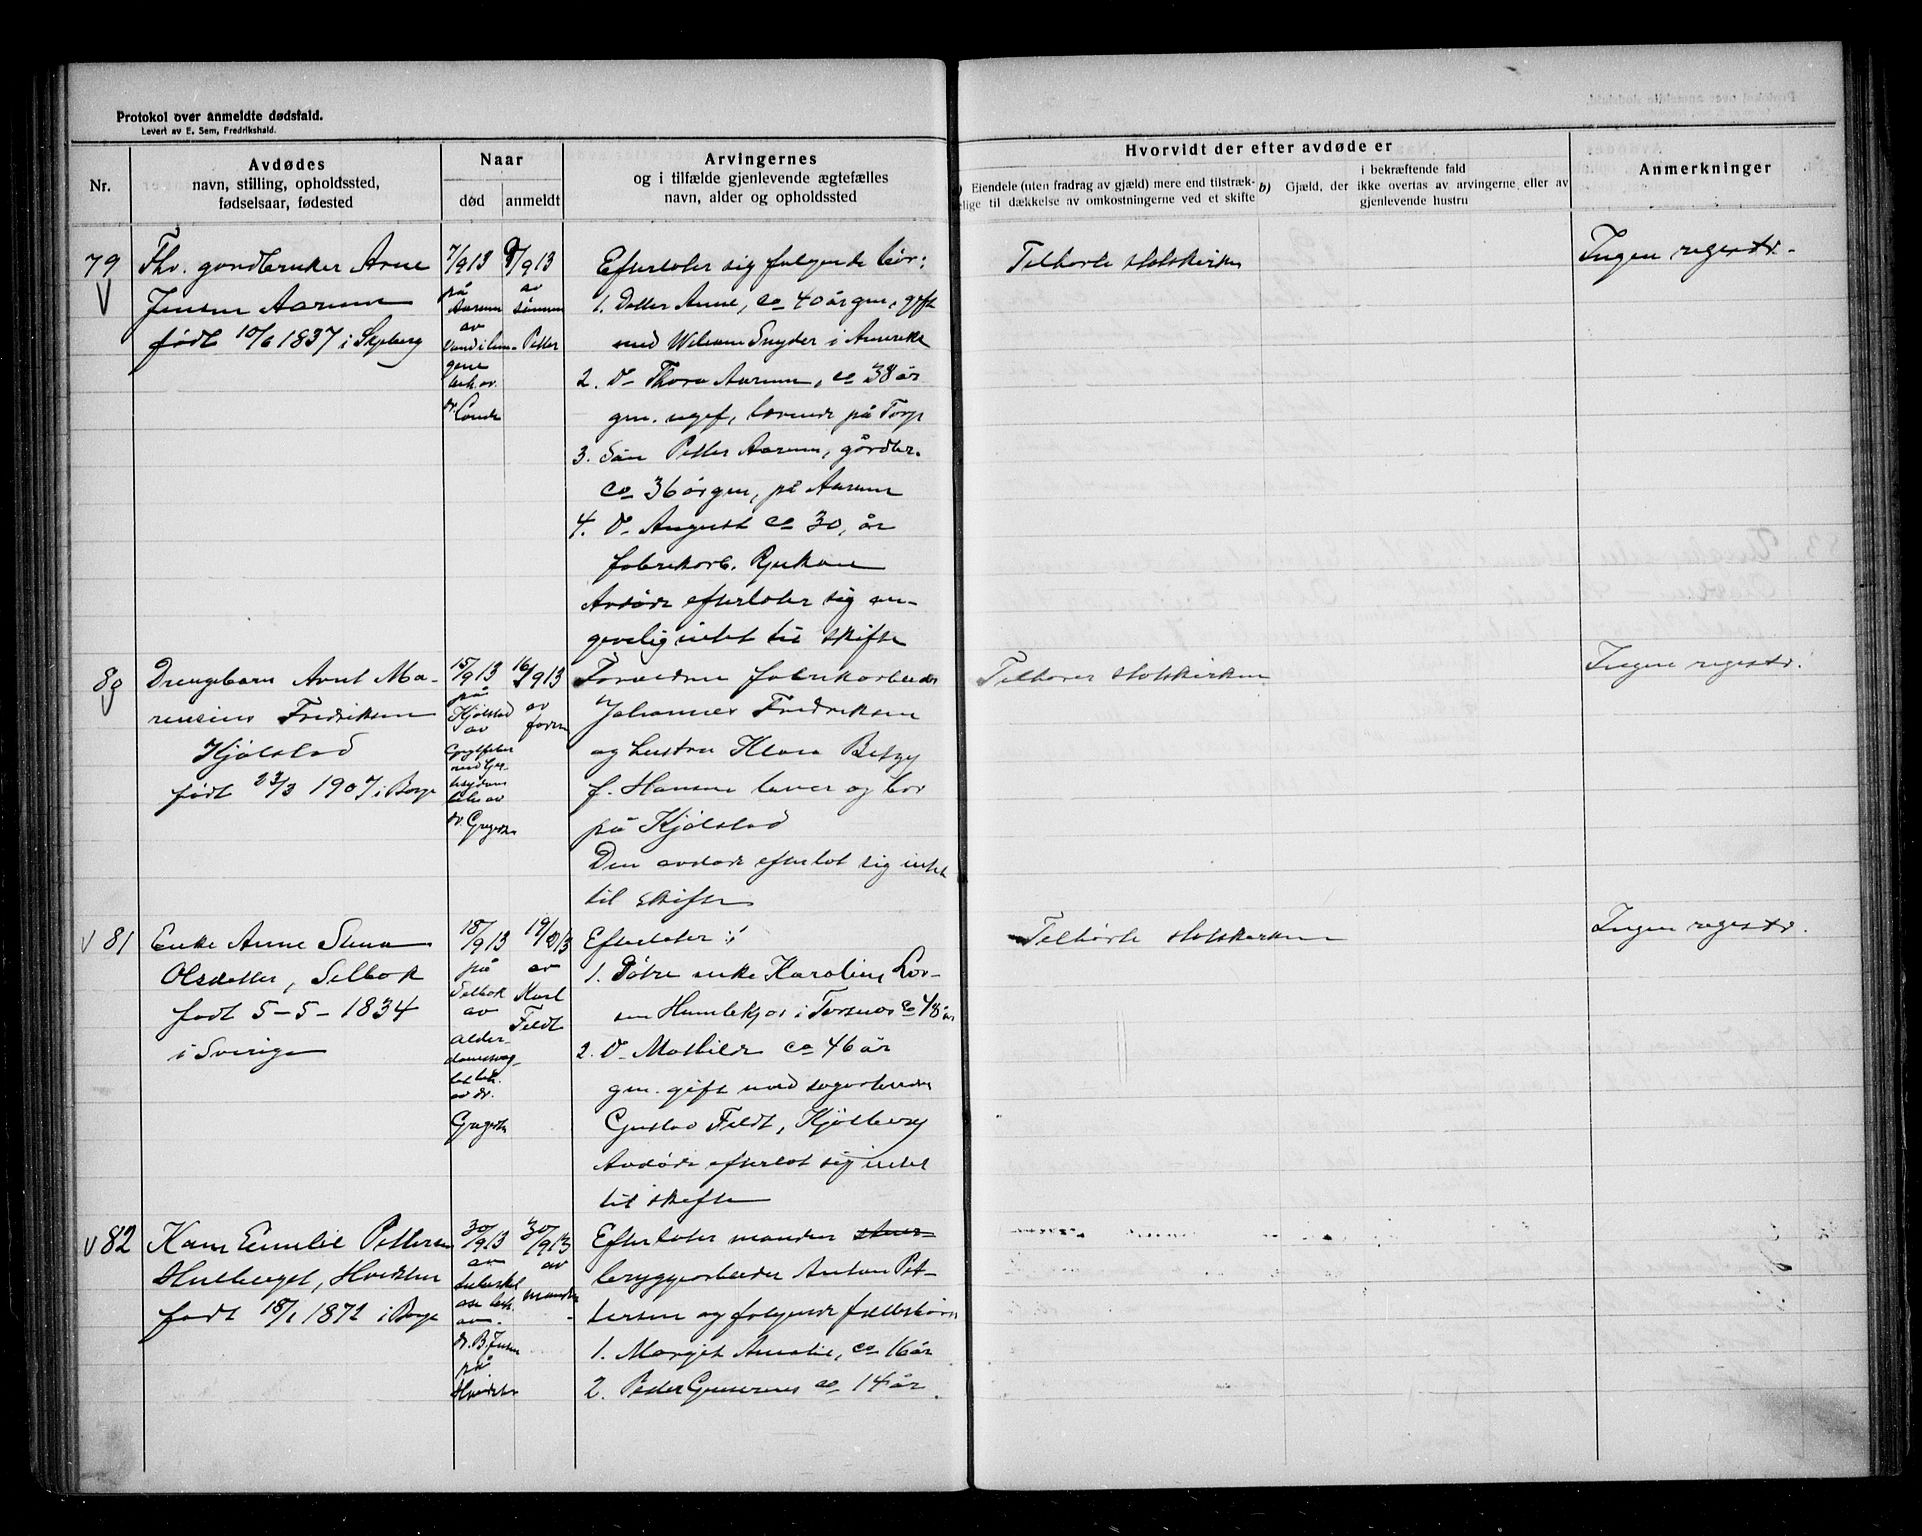 Protokol over anmeldte dødsfald.
Levert av E. Sem, Fredrikshald.
Nr.
Avdødes
navn, stilling, opholdssted,
fødselsaar, fødested
Naar
død
anmeldt
Arvingernes
og i tilfælde gjenlevende ægtefælles
navn, alder og opholdssted
Hvorvidt der efter avdøde er
Eiendele (uten fradrag av gjæld) mere end tilstræk-
lige til dækkelse av omkostningerne ved et skifte
b) Gjæld, der
i bekræftende fald
ikke overtas av arvingerne eller av
gjenlevende hustru
Anmerkninger
79
Fhv. gårdbruker Arne
Jensen Aarum
født 10/6 1837 i Skjeberg
7/9 13
på
Aarum
av
dr.
9/9 13
av
sønnen
Petter
Efterlater sig følgende livsarv:
1. Datter Anne, ca 40 år gm., gift
med Snyder i Amerika
2. D- Thora Aarum, ca 38 år
gm. ugift, boende på Torp
3. Søn Petter Aarum, gårdbr.
ca 36 år gm, på Aarum
4. D- August ca 30, år
fabrikarb. Rjukan
Avdøde efterlater sig an-
givelig intet til skifte
Tilhørte statskirken
Ingen registr.
80
Drengebarn Arnt Ma-
rensius Fredriksen
Kjølstad
født 23/3 1907 i Borge
15/9 13
på
Kjølstad
av
dr. Gregersen
16/9 13
av
faren
Forældrene fabrikarbeider
Johannes Fredriksen
og hustru Klara Betzy
f. Hansen lever og bor
på Kjølstad
Den avdøde efterlot sig intet
til skifte
Tilhører statskirken
Ingen registr.
81
Enke Anne Stina
Olsdatter, Selbak
født 5-5-1834
i Sverige
18/9 13
på
Selbak
av
alder-
domssvag-
het
av dr.
Gregersen
19/9 13
av
Karl
Feldt
Efterlater:
1. Datre enke Karoline Lar-
sen Humlekjær i Torsnes ca 48 år
2. D- Mathilde ca 46 år
gm. gift med sagarbeider
Gustav Feldt, Kjølberg
Avdøde efterlot sig intet
til skifte
Tilhørte statskirken
Ingen registr.
82
Karen Emilie Pettersen
født 18/1 1872 i Borge
30/9 13
av
tuberkel
av
dr. B. Jensen
på
30/9 13
av
manden
Efterlater manden
bryggearbeider Anton Pet-
tersen og følgende fællesbørn
1. Margit Amalie, ca 16 år
2. Peder Gunerius ca 14 år